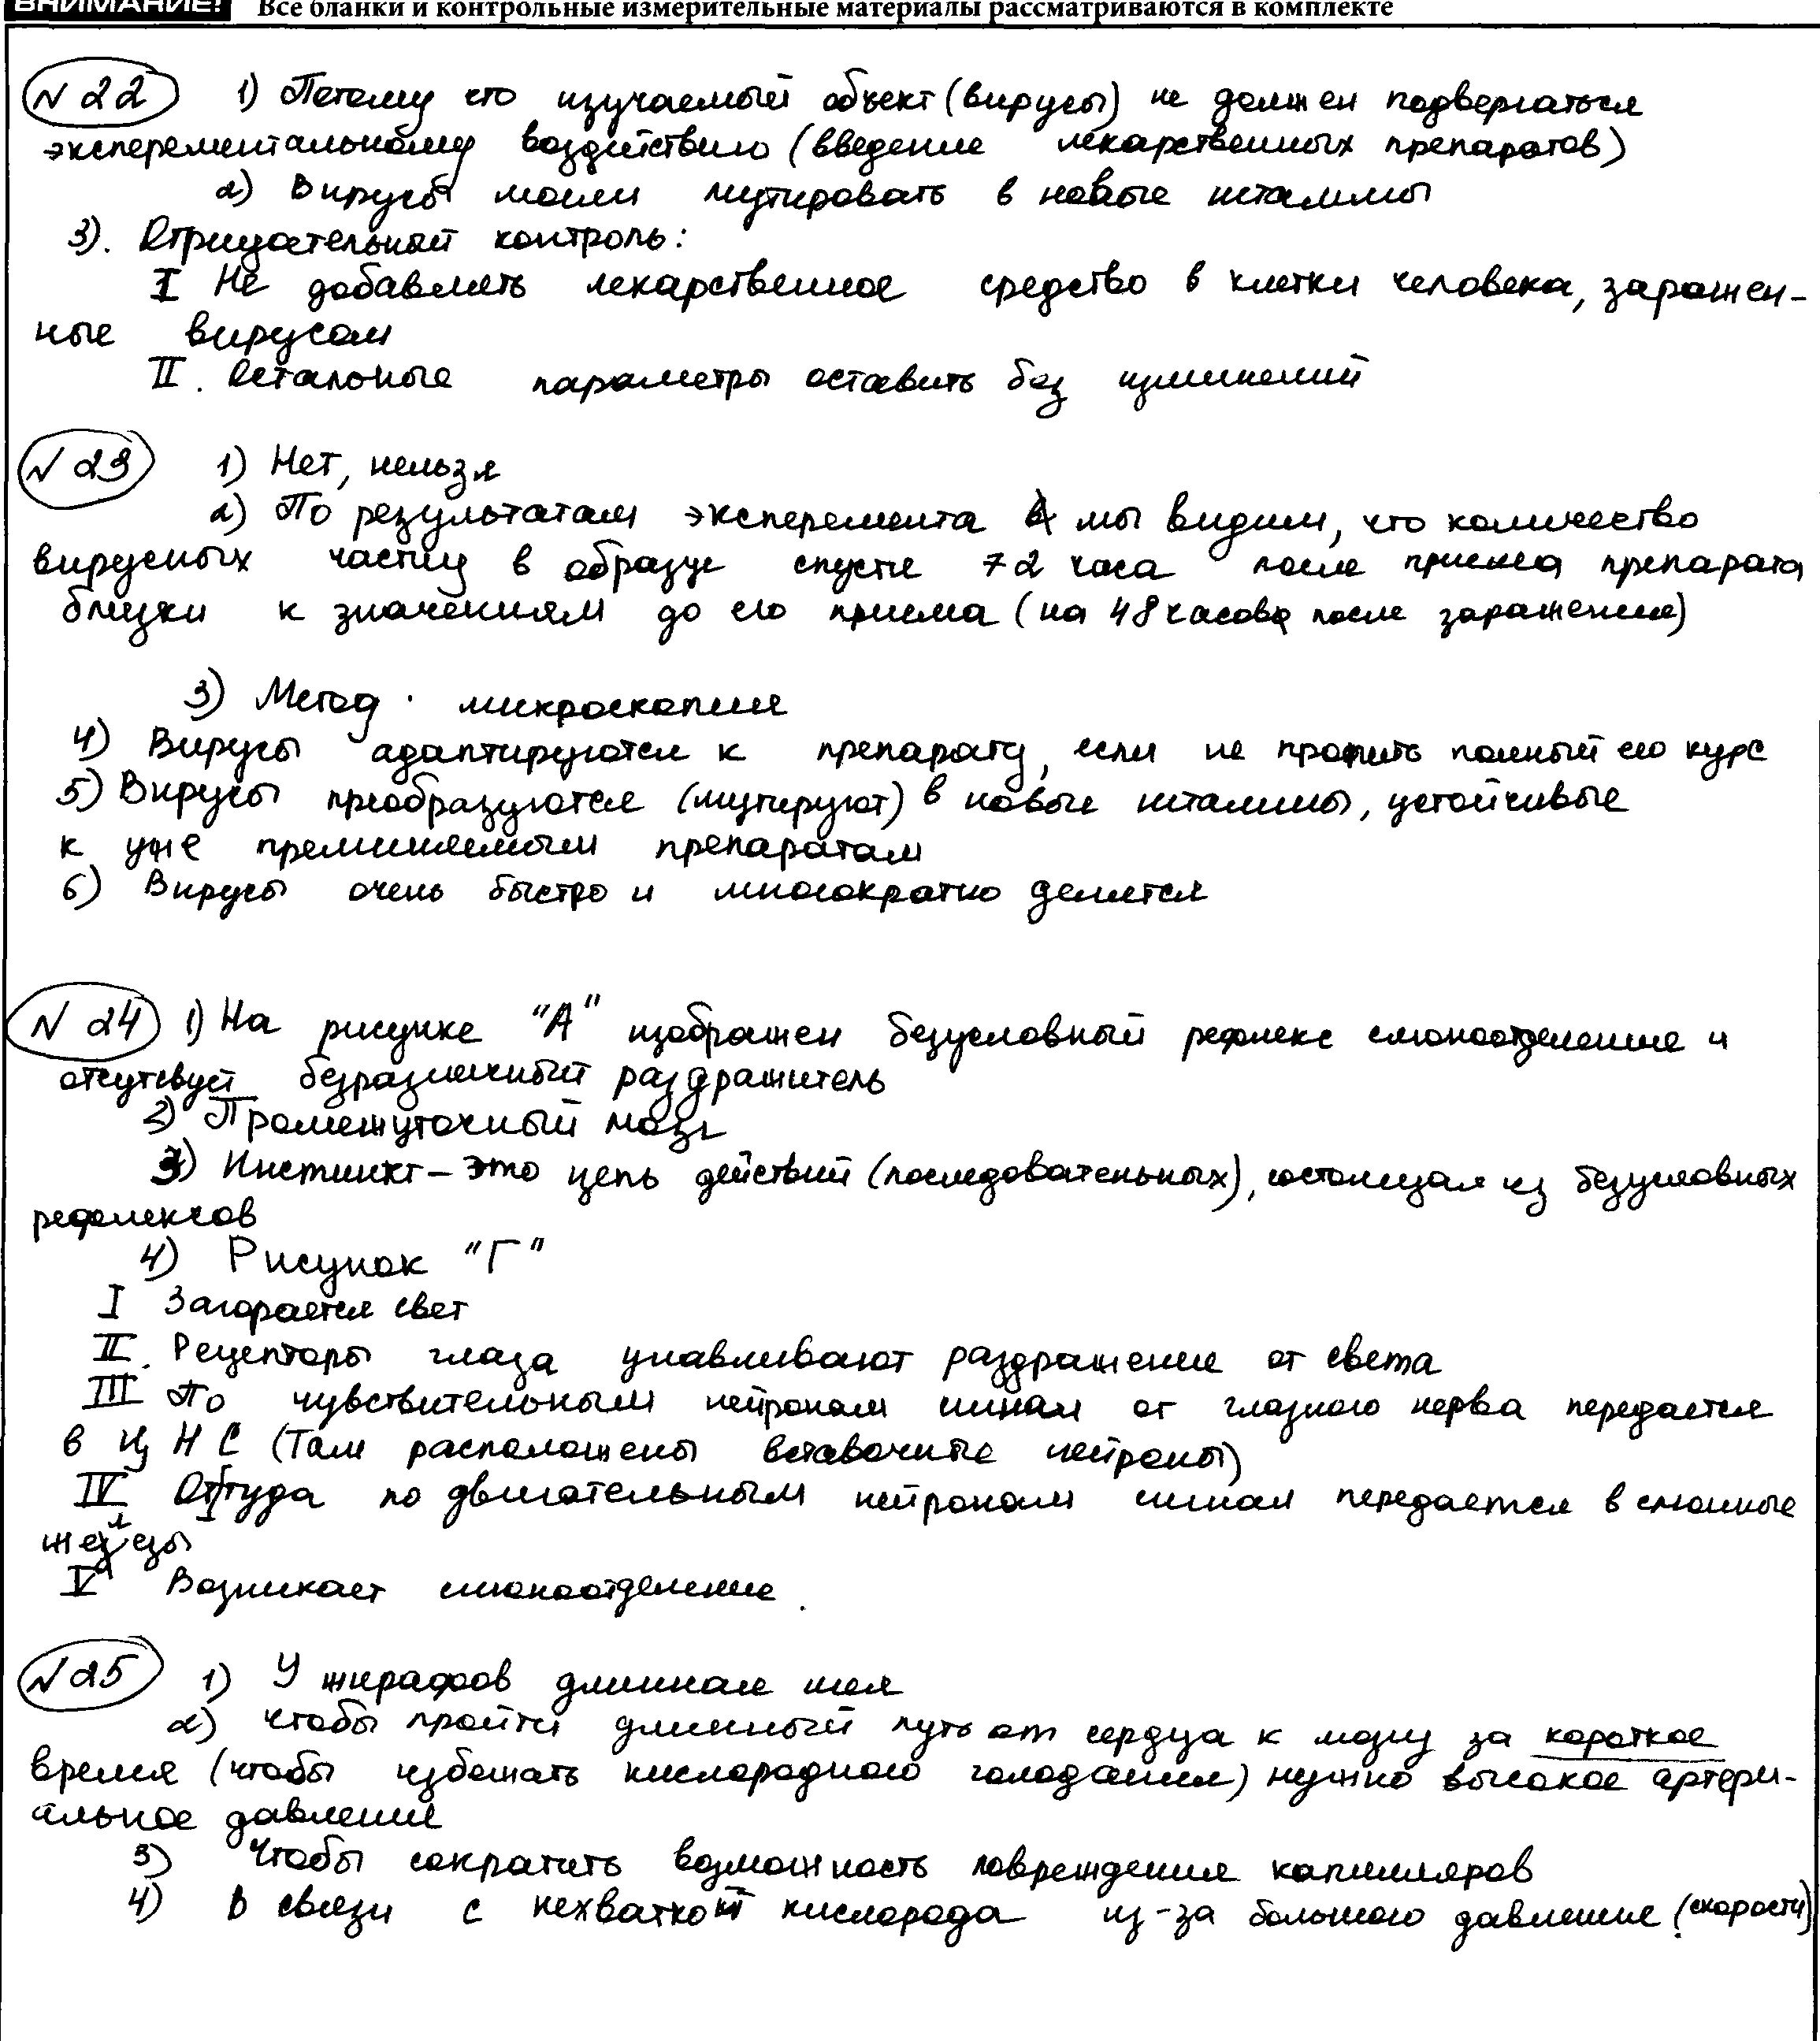 ВНИМАНИЕ! Все бланки и контрольные измерительные материалы рассматриваются в комплекте
№22 1) Потому что изучаемый объект (вирусы) не должен подвергаться
эксперементальному воздействию (введение лекарственных препаратов)
2) Вирусы могли мутировать в новые штаммы
3). Отрицательный контроль:
I Не добавлять лекарственное средство в клетки человека, заражен-
ные вирусом
II. Остальные параметры оставить без изменений
№23 1) Нет, нельзя
2) По результатам эксперемента мы видим, что количество
вирусных частиц в образце спустя 72 часа после приема препарата
близки к значениям до его приема (на 48 часов после заражения)
3) Метод микроскопия
4) Вирусы адаптируются к препарату, если не пропить полный его курс
5) Вирусы преобразуются (мутируют) в новые штаммы, устойчивые
к уже применяемым препаратам
6) Вирусы очень быстро и многократно делятся
№24 1) На рисунке "А" изображен безусловный рефлекс слюноотделение и
отсутсвует безразличный раздражитель
2) Промежуточный мозг
3) Инстинкт - это цепь действий (последовательных), состоящая из безусловных
рефлексов
4) Рисунок "Г"
I Загорается свет
II. Рецепторы глаза улавливают раздражение от света
III По чувствительным нейронам сигнал от глазного нерва передается
в ЦНС (Там расположены вставочные нейроны)
IV Оттуда по двигательным нейронам сигнал передается в слюнные
железы
V Возникает слюноотделение.
№25 1) У жирафов длинная шея
2) Чтобы пройти длинный путь от сердца к мозгу за короткое
время (чтобы избежать кислородного голодания) нужно высокое артери-
альное давление
3) Чтобы сократить возможность повреждения капилляров
4) В связи с нехваткой кислорода из-за большого давления (скорости)